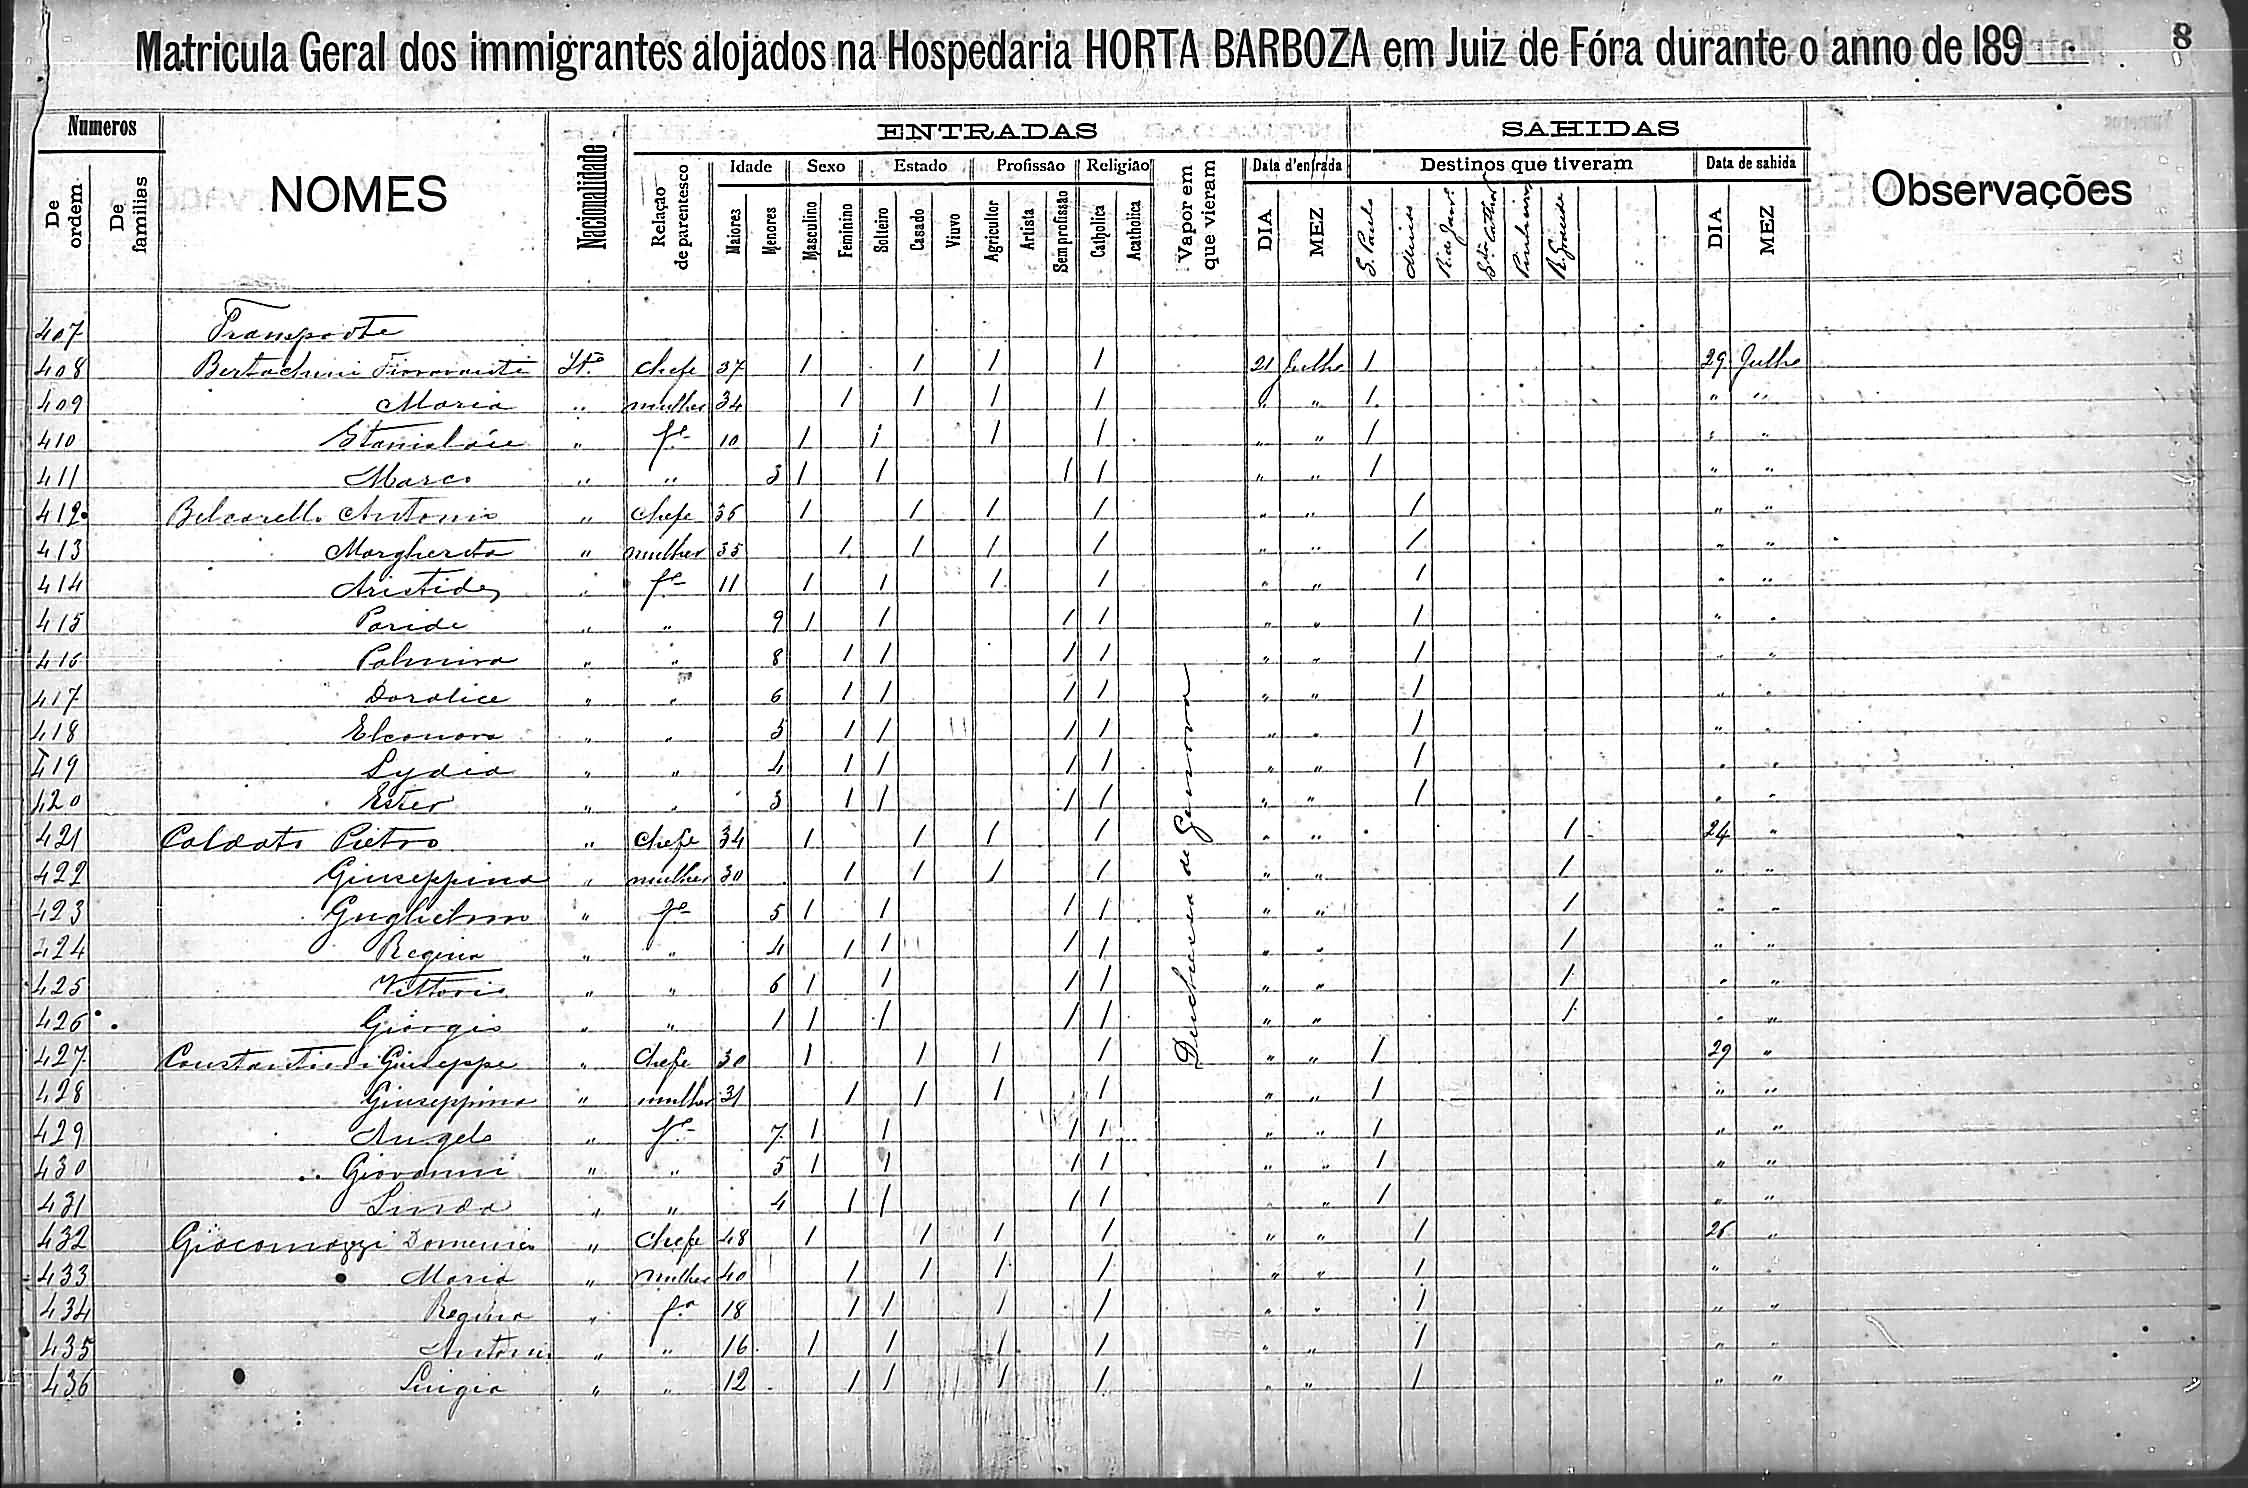 Matricula Geral dos immigrantes alojados na Hospedaria HORTA BARBOZA em Juiz de Fóra durante o anno de 189 8
Numeros ENTRADAS SAHIDAS
De ordem De familias NOMES Nacionalidade Relação de parentesco Idade Sexo Estado Profissão Religião Vapor em que vieram Data d'entrada Destinos que tiveram Data de sahida Observações
Maiores Menores Masculino Feminino Solteiro Casado Viuvo Agricultor Artista Sem profissão Catholica Acatholica DIA MEZ S. Paulo Minas R. de Janro Sta Cathar R. Grande DIA MEZ
407 Transporte
408 Fioravanti It. chefe 37 1 1 1 1 21 Julho 1 29 Julho
409 Maria " mulher 34 1 1 1 1 " " 1 " "
410 fo 10 1 1 1 1 " " 1 " "
411 Marco " " 3 1 1 1 1 " " 1 " "
412 Antonio " chefe 36 1 1 1 1 " " 1 " "
413 Margherita " mulher 35 1 1 1 1 " " 1 " "
414 Aristides " fo 11 1 1 1 1 " " 1 " "
415 Paride " " 9 1 1 1 1 " " 1 " "
416 Palmira " " 8 1 1 1 1 " " 1 " "
417 Doralice " " 6 1 1 1 1 " " 1 " "
418 Eleonora " " 5 1 1 1 1 " " 1 " "
419 Lydia " " 4 1 1 1 1 " " 1 " "
420 Ester " " 3 1 1 1 1 " " 1 " "
421 Caldato Pietro " chefe 34 1 1 1 1 " " 1 24 "
422 Giuseppina " mulher 30 1 1 1 1 " " 1 " "
423 Guglielmo " fo 5 1 1 1 1 " " 1 " "
424 Regina " " 4 1 1 1 1 " " 1 " "
425 Vittorio " " 6 1 1 1 1 " " 1 " "
426 Giorgio " " 1 1 1 1 1 " " 1 " "
427 Constantini Giuseppe " Chefe 30 1 1 1 1 " " 1 29 "
428 Giuseppina " mulher 31 1 1 1 1 " " 1 " "
429 Angelo " fo 7 1 1 1 1 " " 1 " "
430 Giovanni " " 5 1 1 1 1 " " 1 " "
431 Linda " " 4 1 1 1 1 " " 1 " "
432 Giacomozzi Domenico " Chefe 48 1 1 1 1 " " 1 26 "
433 Maria " mulher 40 1 1 1 1 " " 1 " "
434 Regina " fa 18 1 1 1 1 " " 1 " "
435 Antonio " " 16 1 1 1 1 " " 1 " "
436 Luigia " " 12 1 1 1 1 " " 1 " "
Duchessa de Genova